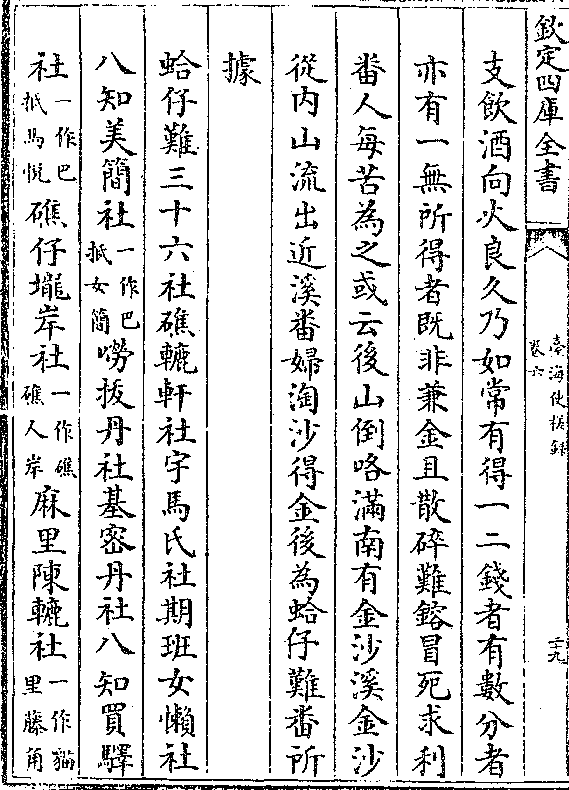 欽定四庫全書
臺海使槎錄
卷六
三九
支飲酒向火良久乃如常有得一二錢者有數分者
亦有一無所得者既非兼金且散碎難鎔冒死求利
番人每苦為之或云後山倒咯滿南有金沙溪金沙
從内山流出近溪番婦淘沙得金後為蛤仔難番所
據
蛤仔難三十六社礁轆軒社宇馬氏社期班女懶社
八知美簡社一作巴抵女簡嘮拔丹社基密丹社八知買驛
社一作巴抵馬悦礁仔壠岸社一作礁礁人岸麻里陳轆社一作貓里藤角